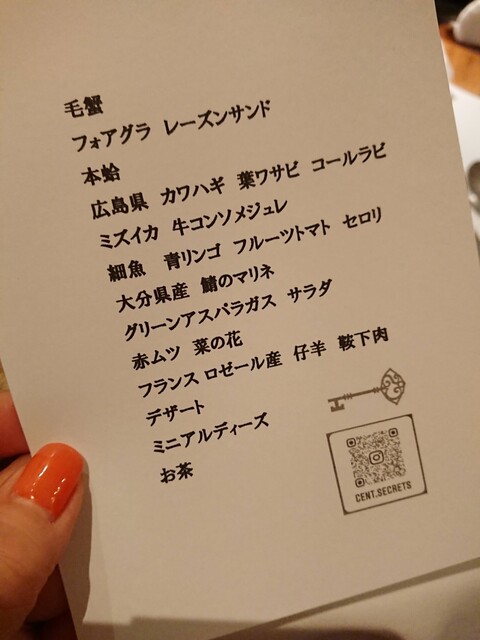 毛蟹
フォアグラ レーズンサンド
本蛤
広島県 カワハギ 葉ワサビ コールラビ
ミズイカ 牛コンソメジュレ
細魚 青リンゴ フルーツトマト セロリ
大分県産 鯖のマリネ
グリーンアスパラガス サラダ
赤ムツ 菜の花
フランス ロゼール産 仔羊 鞍下肉
デザート
ミニアルディーズ
お茶
CENT.SECRETS